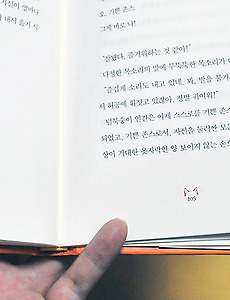 자신이 얼마나
내서 즐기 시
오, 기쁜 존스
그게 바로 나!
"잘됐다. 즐거워하는 것 같아!"
다정한 목소리의 말에 무뚝뚝한 목소리가
"즐겁게 소리도 내고 있네. 봐, 발을 물가
서 허공에 휘젓고 있잖아. 정말 귀여워!"
털북숭이 인간은 이제 스스로를 기쁜 존
되었고, 기쁜 존스로서, 자신을 둘러싼 모든
삼이 거대한 옷자락인 양 보이지 않는 손으
105